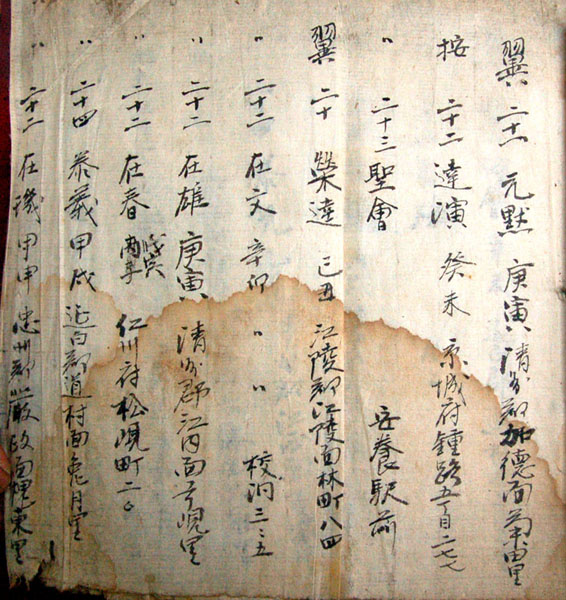 翼 二十一 元默 庚寅 清州郡加德面菊田里
按 二十二 達演 癸未 京城府鍾路五丁目二七七
〃 二十三 聖會 安養駅前
翼 二十 榮達 己丑 江陵郡江陵面林町八四
〃 二十二 在文 辛卯 〃 〃 校洞三三五
〃 二十二 在雄 庚寅 清州郡江內面弓峴里
〃 二十二 在春 戊寅 仁川府松峴町二〇
〃 二十四 泰義 甲戌 道村面兔月里
〃 二十二 在璣 甲申 忠州郡嚴政面